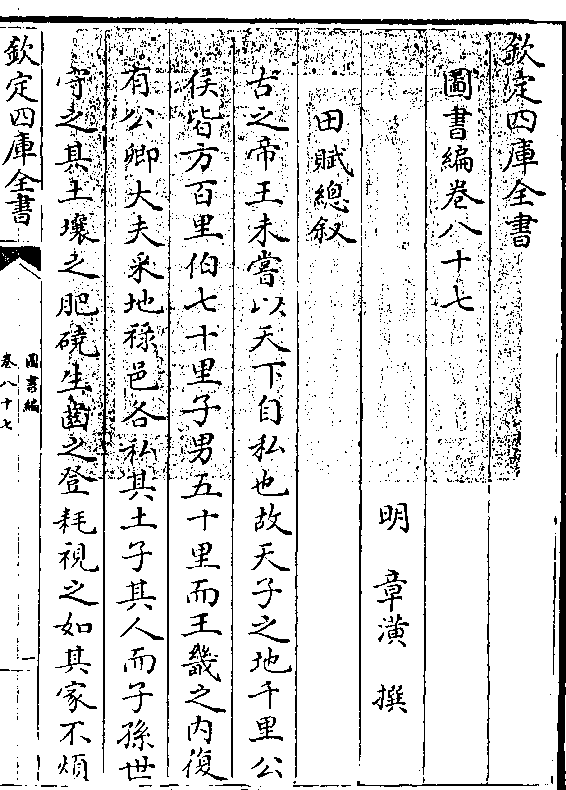 欽定四庫全書
圖書編卷八十七
明 章潢 撰
田賦總叙
古之帝王未嘗以天下自私也故天子之地千里公
侯皆方百里伯七十里子男五十里而王畿之内復
有公卿大夫采地祿邑各私其土子其人而子孫世
守之其土壤之肥磽生齒之登耗視之如其家不煩
欽定四庫全書
圖書編
卷八十七